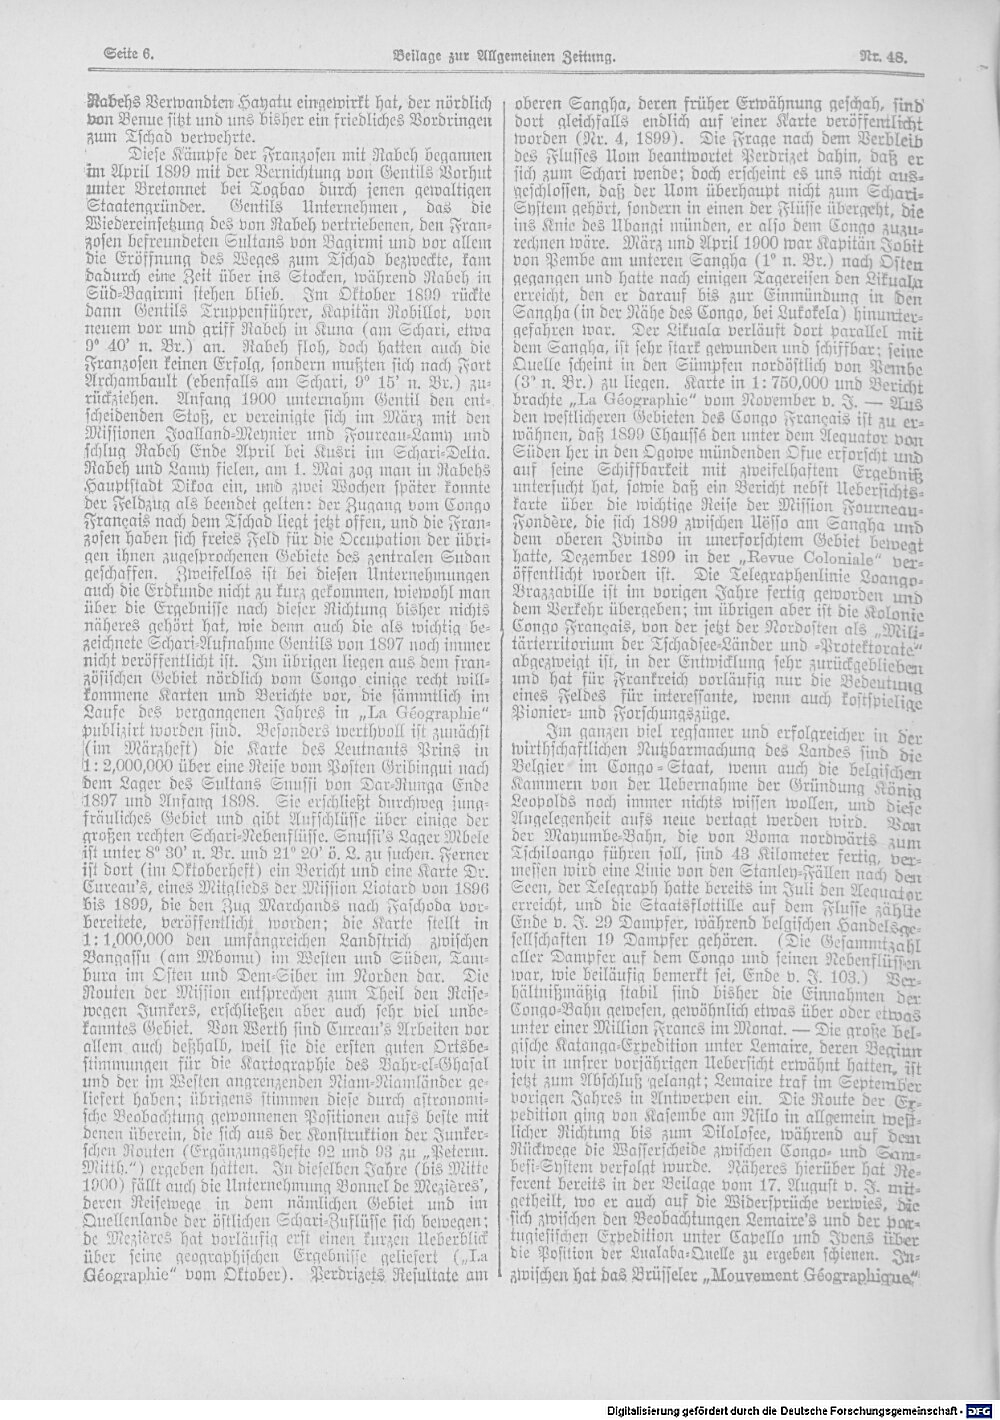 Seite 6.
Beilage zur Allgemeinen Zeitung.
Nr. 48.
Rabehs Verwandten Hayatu eingewirkt hat, der nördlich
von Benue sitzt und uns bisher ein friedliches Vordringen
zum Tschad verwehrte.
Diese Kämpfe der Franzosen mit Rabeh begannen
im April 1899 mit der Vernichtung von Gentils Vorhut
unter Bretonnet bei Togbao durch jenen gewaltigen
Staatengründer. Gentils Unternehmen, das die
Wiedereinsetzung des von Rabeh vertriebenen, den Fran-
zosen befreundeten Sultans von Bagirmi und vor allem
die Eröffnung des Weges zum Tschad bezweckte, kam
dadurch eine Zeit über ins Stocken, während Rabeh in
Süd-Bagirmi stehen blieb. Im Oktober 1899 rückte
dann Gentils Truppenführer, Kapitän Robillot, von
neuem vor und griff Rabeh in Kuna (am Schari, etwa
9° 40' n. Br.) an. Rabeh floh, doch hatten auch die
Franzosen keinen Erfolg, sondern mußten sich nach Fort
Archambault (ebenfalls am Schari, 9° 15' n. Br.) zu-
rückziehen. Anfang 1900 unternahm Gentil den ent-
scheidenden Stoß, er vereinigte sich im März mit den
Missionen Joalland-Meynier und Foureau-Lamy und
schlug Rabeh Ende April bei Kusri im Schari-Delta.
Rabeh und Lamy fielen, am 1. Mai zog man in Rabehs
Hauptstadt Dikoa ein, und zwei Wochen später konnte
der Feldzug als beendet gelten: der Zugang vom Congo
Français nach dem Tschad liegt jetzt offen, und die Fran-
zosen haben sich freies Feld für die Occupation der übri-
gen ihnen zugesprochenen Gebiete des zentralen Sudan
geschaffen. Zweifellos ist bei diesen Unternehmungen
auch die Erdkunde nicht zu kurz gekommen, wiewohl man
über die Ergebnisse nach dieser Richtung bisher nichts
näheres gehört hat, wie denn auch die als wichtig be-
zeichnete Schari-Aufnahme Gentils von 1897 noch immer
nicht veröffentlicht ist. Im übrigen liegen aus dem fran-
zösischen Gebiet nördlich vom Congo einige recht will-
kommene Karten und Berichte vor, die sämmtlich im
Laufe des vergangenen Jahres in „La Géographie“
publizirt worden sind. Besonders werthvoll ist zunächst
(im Märzheft) die Karte des Leutnants Prins in
1 : 2,000,000 über eine Reise vom Posten Gribingui nach
dem Lager des Sultans Snussi von Dar-Runga Ende
1897 und Anfang 1898. Sie erschließt durchweg jung-
fräuliches Gebiet und gibt Aufschlüsse über einige der
großen rechten Schari-Nebenflüsse. Snussi's Lager Mbele
ist unter 8° 30' n. Br. und 21° 20' ö. L. zu suchen. Ferner
ist dort (im Oktoberheft) ein Bericht und eine Karte Dr.
Cureau's, eines Mitglieds der Mission Liotard von 1896
bis 1899, die den Zug Marchands nach Faschoda vor-
bereitete, veröffentlicht worden; die Karte stellt in
1 : 1,000,000 den umfangreichen Landstrich zwischen
Bangassu (am Mbomu) im Westen und Süden, Tam-
bura im Osten und Dem-Siber im Norden dar. Die
Routen der Mission entsprechen zum Theil den Reise-
wegen Junkers, erschließen aber auch sehr viel unbe-
kanntes Gebiet. Von Werth sind Cureau's Arbeiten vor
allem auch deßhalb, weil sie die ersten guten Ortsbe-
stimmungen für die Kartographie des Bahr-el-Ghasal
und der im Westen angrenzenden Niam-Niamländer ge-
liefert haben; übrigens stimmen diese durch astronomi-
sche Beobachtung gewonnenen Positionen aufs beste mit
denen überein, die sich aus der Konstruktion der Junker-
schen Routen (Ergänzungshefte 92 und 93 zu „Peterm.
Mitth.“) ergeben hatten. In dieselben Jahre (bis Mitte
1900) fällt auch die Unternehmung Bonnel de Mezières',
deren Reisewege in dem nämlichen Gebiet und im
Quellenlande der östlichen Schari-Zuflüsse sich bewegen;
de Mezières hat vorläufig erst einen kurzen Ueberblick
über seine geographischen Ergebnisse geliefert („La
Géographie“ vom Oktober). Perdrizets Resultate am
oberen Sangha, deren früher Erwähnung geschah, sind
dort gleichfalls endlich auf einer Karte veröffentlicht
worden (Nr. 4, 1899). Die Frage nach dem Verbleib
des Flusses Uom beantwortet Perdrizet dahin, daß er
sich zum Schari wende; doch erscheint es uns nicht aus-
geschlossen, daß der Uom überhaupt nicht zum Schari-
System gehört, sondern in einen der Flüsse übergeht, die
ins Knie des Ubangi münden, er also dem Congo zuzu-
rechnen wäre. März und April 1900 war Kapitän Jobit
von Pembe am unteren Sangha (1° n. Br.) nach Osten
gegangen und hatte nach einigen Tagereisen den Likuala
erreicht, den er darauf bis zur Einmündung in den
Sangha (in der Nähe des Congo, bei Lukokela) hinunter-
gefahren war. Der Likuala verläuft dort parallel mit
dem Sangha, ist sehr stark gewunden und schiffbar; seine
Quelle scheint in den Sümpfen nordöstlich von Pembe
(3° n. Br.) zu liegen. Karte in 1 : 750,000 und Bericht
brachte „La Géographie“ vom November v. J. — Aus
den westlicheren Gebieten des Congo Français ist zu er-
wähnen, daß 1899 Chaussé den unter dem Aequator von
Süden her in den Ogowe mündenden Ofue erforscht und
auf seine Schiffbarkeit mit zweifelhaftem Ergebniß
untersucht hat, sowie daß ein Bericht nebst Uebersichts-
karte über die wichtige Reise der Mission Fourneau-
Fondère, die sich 1899 zwischen Uësso am Sangha und
dem oberen Ivindo in unerforschtem Gebiet bewegt
hatte, Dezember 1899 in der „Revue Coloniale“ ver-
öffentlicht worden ist. Die Telegraphenlinie Loango-
Brazzaville ist im vorigen Jahre fertig geworden und
dem Verkehr übergeben; im übrigen aber ist die Kolonie
Congo Français, von der jetzt der Nordosten als „Mili-
tärterritorium der Tschadsee-Länder und -Protektorate“
abgezweigt ist, in der Entwicklung sehr zurückgeblieben
und hat für Frankreich vorläufig nur die Bedeutung
eines Feldes für interessante, wenn auch kostspielige
Pionier- und Forschungszüge.
Im ganzen viel regsamer und erfolgreicher in der
wirthschaftlichen Nutzbarmachung des Landes sind die
Belgier im Congo-Staat, wenn auch die belgischen
Kammern von der Uebernahme der Gründung König
Leopolds noch immer nichts wissen wollen, und diese
Angelegenheit aufs neue vertagt werden wird. Von
der Mayumbe-Bahn, die von Boma nordwärts zum
Tschiloango führen soll, sind 43 Kilometer fertig, ver-
messen wird eine Linie von den Stanley-Fällen nach den
Seen, der Telegraph hatte bereits im Juli den Aequator
erreicht, und die Staatsflottille auf dem Flusse zählte
Ende v. J. 29 Dampfer, während belgischen Handelsge-
sellschaften 19 Dampfer gehören. (Die Gesammtzahl
aller Dampfer auf dem Congo und seinen Nebenflüssen
war, wie beiläufig bemerkt sei, Ende v. J. 103.) Ver-
hältnißmäßig stabil sind bisher die Einnahmen der
Congo-Bahn gewesen, gewöhnlich etwas über oder etwas
unter einer Million Francs im Monat. — Die große bel-
gische Katanga-Expedition unter Lemaire, deren Beginn
wir in unsrer vorjährigen Uebersicht erwähnt hatten, ist
jetzt zum Abschluß gelangt; Lemaire traf im September
vorigen Jahres in Antwerpen ein. Die Route der Ex-
pedition ging von Kasembe am Nsilo in allgemein west-
licher Richtung bis zum Dilolosee, während auf dem
Rückwege die Wasserscheide zwischen Congo- und Sam-
besi-System verfolgt wurde. Näheres hierüber hat Re-
ferent bereits in der Beilage vom 17. August v. J. mit-
getheilt, wo er auch auf die Widersprüche verwies, die
sich zwischen den Beobachtungen Lemaire's und der por-
tugiesischen Expedition unter Capello und Ivens über
die Position der Lualaba-Quelle zu ergeben schienen. In-
zwischen hat das Brüsseler „Mouvement Géographique“
Digitalisierung gefördert durch die Deutsche Forschungsgemeinschaft - DFG